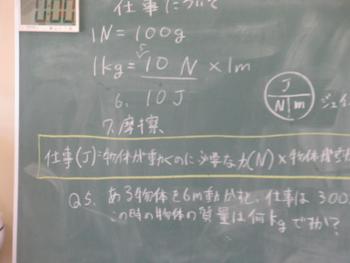 0:00
仕事について
1N=100g
5.
1kg=10 N×1m
6. 10J
7. 摩擦
J
N m
ジュイ
仕事(J):物体が動くのに必要な力(N)×物体が
Q5. ある物体を6m動かすと、仕事は300
この時の物体の質量は何kgですか?